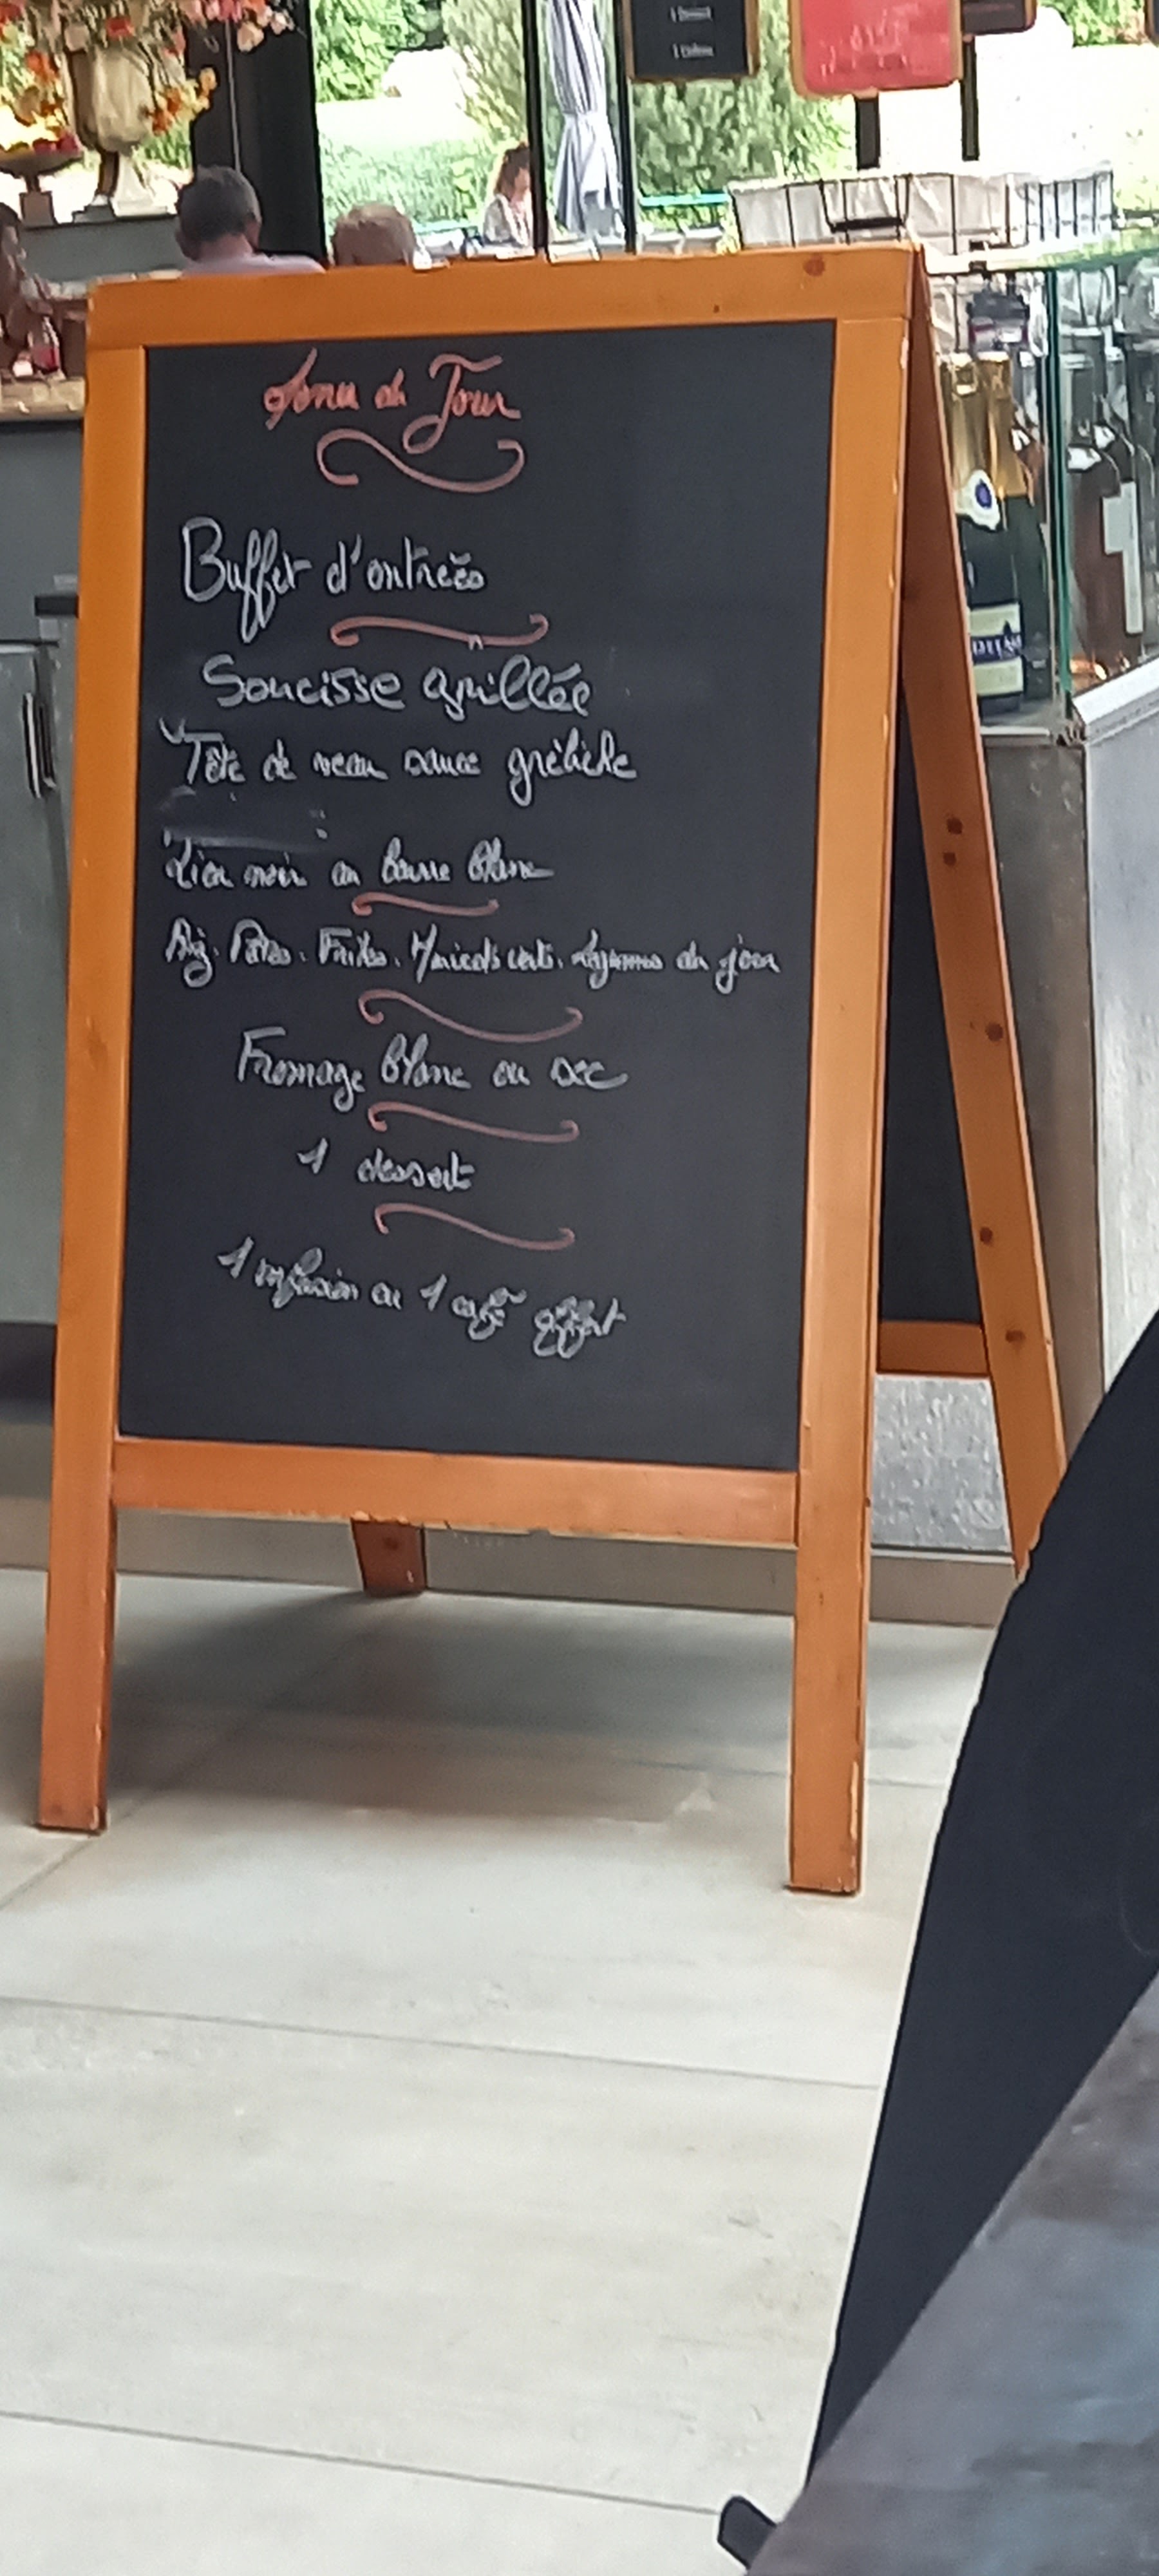 Menu du Jour
Buffet d'entrées
Soucisse grillée
Tête de veau sauce gribiche
Lieu noir au beurre blanc
Riz. Pates. Frites. Haricots verts. légumes du jour
Fromage blanc ou sec
1 dessert
1 infusion ou 1 café offert